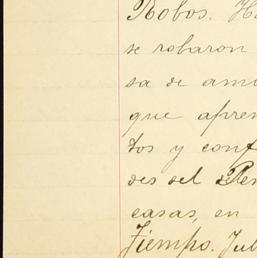 Robos. H
se robaron
sa de am
que apren
tos y conf
des del Per
casas, en
Tiempo. Jul